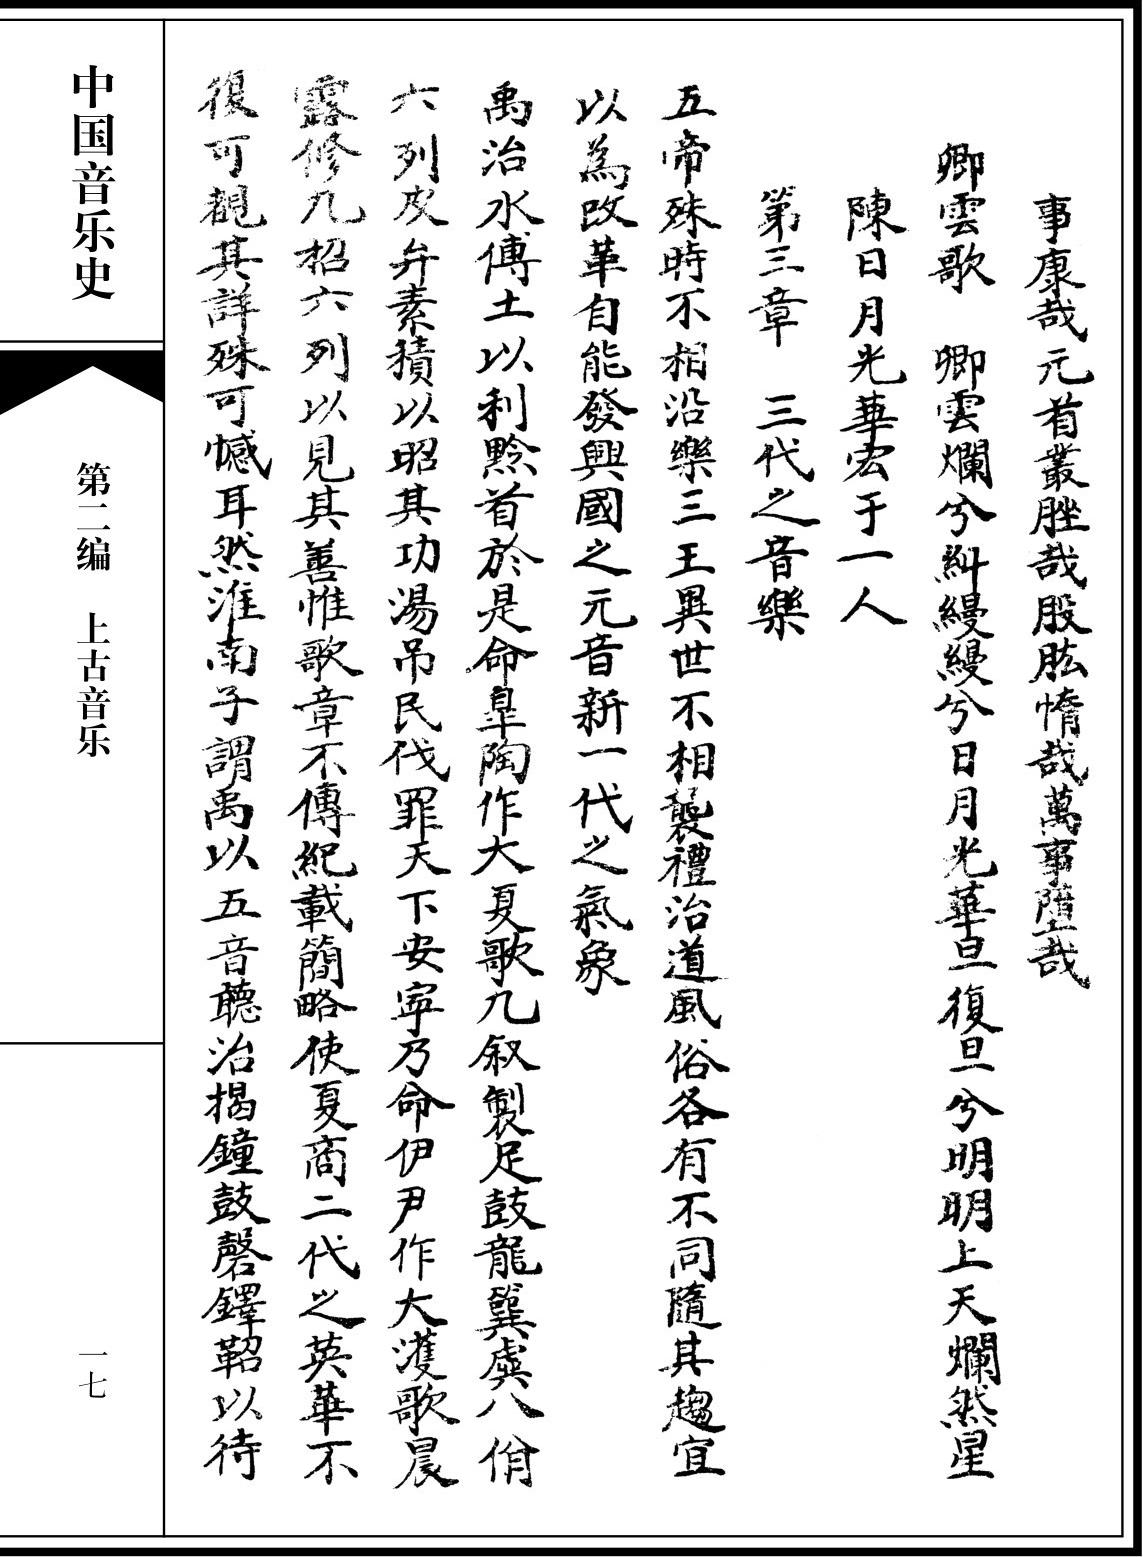 事康哉元首叢脞哉股肱惰哉萬事墮哉
卿雲歌　卿雲爛兮糾縵縵兮日月光華旦復旦兮明明上天爛然星
陳日月光華宏于一人
第三章　三代之音樂
五帝殊時不相沿樂三王異世不相襲禮治道風俗各有不同隨其趨宜
以為改革自能發興國之元音新一代之氣象
禹治水傅土以利黔首於是命皐陶作大夏歌九叙製足鼓龍簨虡八佾
六列皮弁素積以昭其功湯吊民伐罪天下安寜乃命伊尹作大濩歌晨
露修九招六列以見其善惟歌章不傳紀載簡略使夏商二代之英華不
復可觀其詳殊可憾耳然淮南子謂禹以五音聽治揭鐘鼓磬鐸鞀以待
中国音乐史
第二编　上古音乐
一七